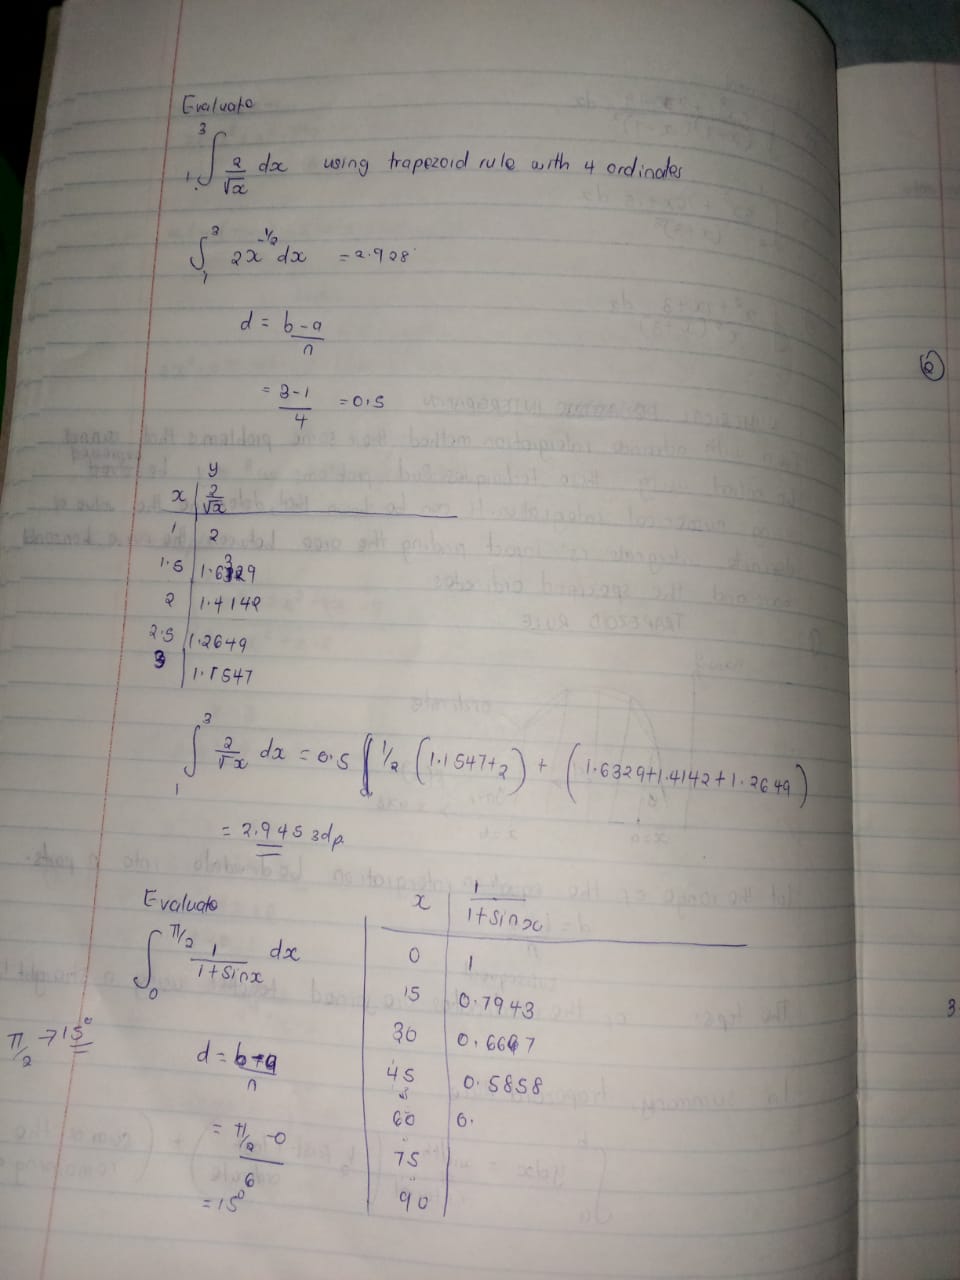 Evaluate
∫₁³ 2/√x dx using trapezoid rule with 4 ordinates
∫₁³ 2x^-1/2 dx = 2.928
d = b-a/n
= 3-1/4 = 0.5
x | y 2/√x
1 | 2
1.5 | 1.6329
2 | 1.4142
2.5 | 1.2649
3 | 1.1547
∫₁³ 2/√x dx = 0.5 [ 1/2 (1.1547+2) + (1.6329+1.4142+1.2649)
= 2.945 3dp
Evaluate
∫₀^π/2 1/1+sinx dx
π/2 → 15°
d = b-a/n
= π/2 -0/6
= 15°
x | 1/1+sinx
0 | 1
15 | 0.7943
30 | 0.6667
45 | 0.5858
60 | 0.
75
90
(2)
3